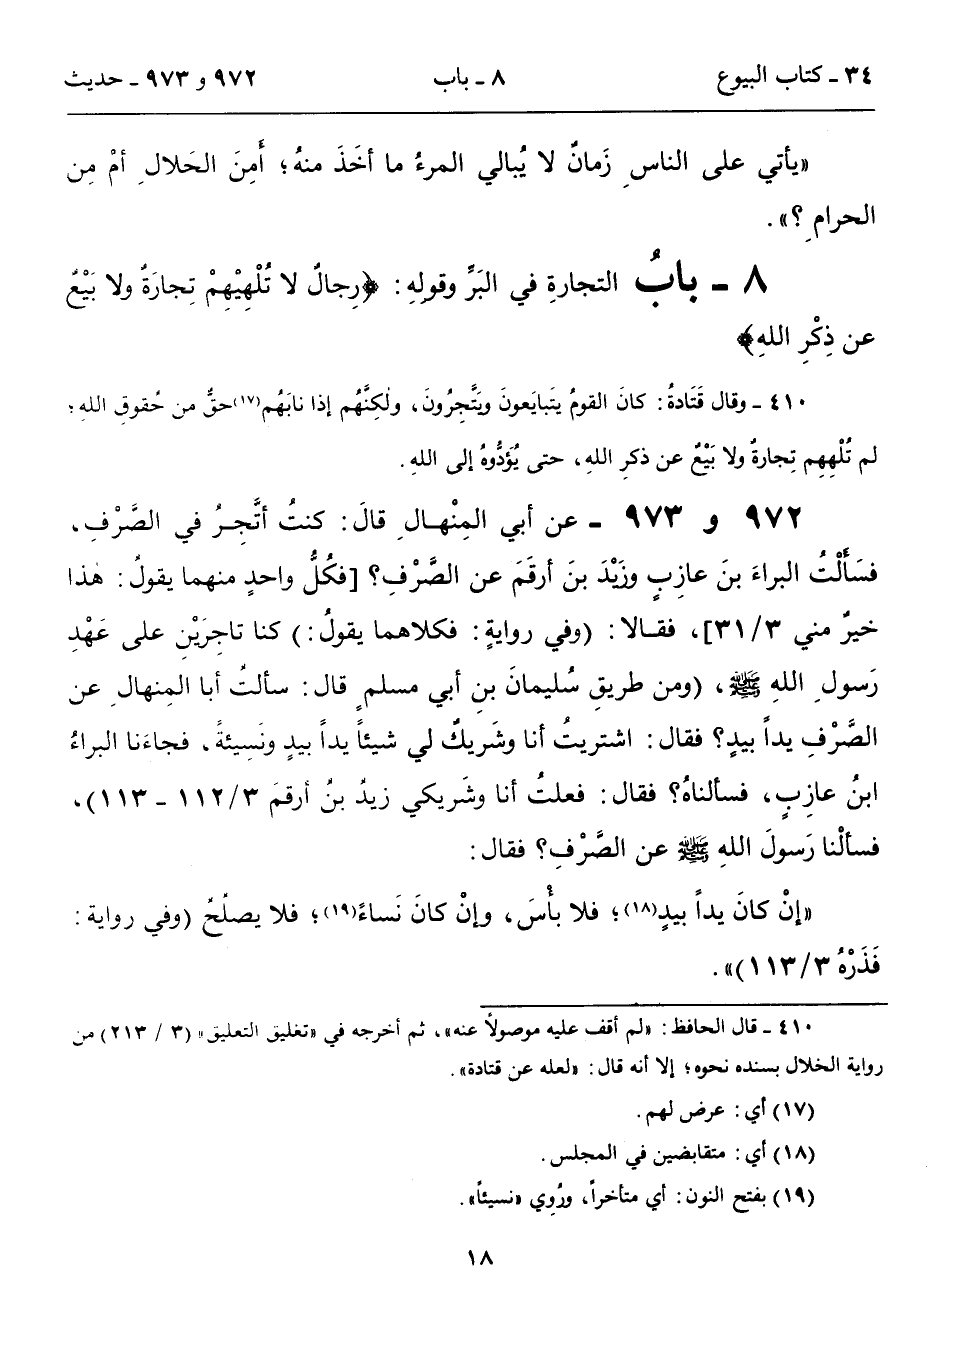 ٣٤ ـ كتاب البيوع ٨ ـ باب ٩٧٢ و ٩٧٣ ـ حديث
«يأتي على الناسِ زَمانٌ لا يُبالي المرءُ ما أخَذَ منهُ؛ أَمِنَ الحَلالِ أمْ مِن
الحرامِ؟».
٨ ـ بابُ التجارةِ في البَرِّ وقولِهِ: ﴿رِجالٌ لا تُلْهِيْهِمْ تِجارَةٌ ولا بَيْعٌ
عن ذِكْرِ اللهِ﴾
٤١٠ ـ وقال قَتَادةُ: كانَ القومُ يَتبايَعونَ ويَتَّجِرُونَ، ولكِنَّهُم إذا نابَهُم(١٧) حقٌّ من حُقوقِ اللهِ؛
لم تُلْهِهِم تِجارةٌ ولا بَيْعٌ عن ذكرِ اللهِ، حتى يُؤَدُّوهُ إلى اللهِ.
٩٧٢ و ٩٧٣ ـ عن أبي المِنْهالِ قالَ: كنتُ أتَّجِرُ في الصَّرْفِ،
فسَأَلْتُ البراءَ بنَ عازِبٍ وزَيْدَ بنَ أرقَمَ عن الصَّرْفِ؟ [فكُلُّ واحدٍ منهما يقولُ: هذا
خيرٌ مني ٣١/٣]، فقالا: (وفي روايةٍ: فكلاهما يقولُ:) كنا تاجِرَيْنِ على عَهْدِ
رَسولِ اللهِ ﷺ، (ومن طريقِ سُليمانَ بنِ أبي مسلمٍ قال: سألتُ أبا المِنهالِ عن
الصَّرْفِ يداً بيدٍ؟ فقال: اشتريتُ أنا وشَريكٌ لي شيئاً يداً بيدٍ ونَسِيئةً، فجاءَنا البراءُ
ابنُ عازِبٍ، فسألناهُ؟ فقال: فعلتُ أنا وشَريكي زيدُ بنُ أرقمَ ١١٢/٣ ـ ١١٣)،
فسألْنا رَسولَ اللهِ ﷺ عن الصَّرْفِ؟ فقال:
«إنْ كانَ يداً بيدٍ(١٨)؛ فلا بأْسَ، وإنْ كانَ نَساءً(١٩)؛ فلا يصلُحُ (وفي رواية:
فَذَرْهُ ١١٣/٣)».
٤١٠ ـ قال الحافظ: «لم أقف عليه موصولاً عنه»، ثم أخرجه في «تغليق التعليق» (٣ / ٢١٣) من
رواية الخلال بسنده نحوه؛ إلا أنه قال: «لعله عن قتادة».
(١٧) أي: عرض لهم.
(١٨) أي: متقابضين في المجلس.
(١٩) بفتح النون: أي متأخراً، ورُوي «نسيئاً».
١٨